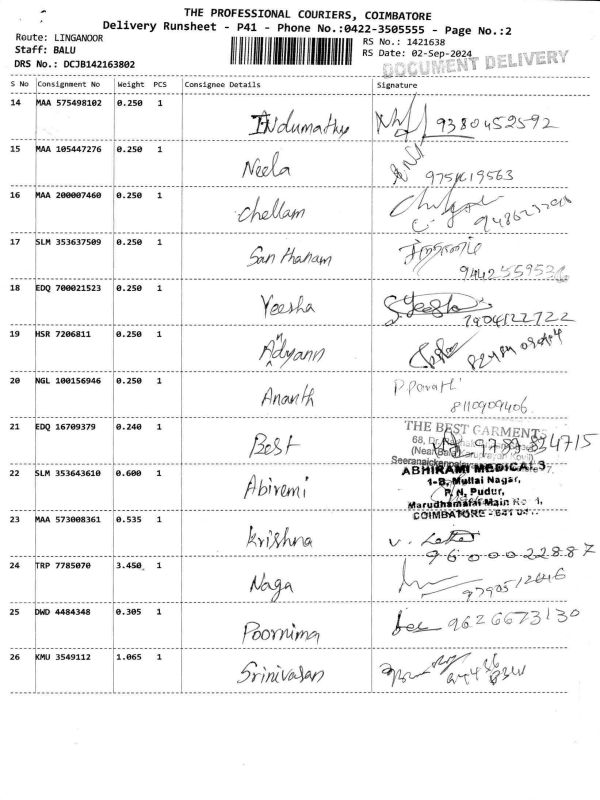 THE PROFESSIONAL COURIERS, COIMBATORE
Delivery Runsheet - P41 - Phone No.:0422-3505555 - Page No.:2
Route: LINGANOOR
RS No.: 1421638
Staff: BALU
RS Date: 02-Sep-2024
DRS No.: DCJB142163802
DOCUMENT DELIVERY
S No Consignment No Weight PCS Consignee Details Signature
14 MAA 575498102 0.250 1
Indumathy 9380452592
15 MAA 105447276 0.250 1
Neela
16 MAA 200007460 0.250 1
chellam
17 SLM 353637509 0.250 1
Santhanam
18 EDQ 700021523 0.250 1
Yeesha S.Yeesha
7904122722
19 HSR 7206811 0.250 1
20 NGL 100156946 0.250 1
Ananth
8110909406
21 EDQ 16709379 0.240 1 THE BEST GARMENTS
Best
22 SLM 353643610 0.600 1 ABHIRAMI MEDICALS
Abiremi 1-B, Mullai Nagar,
P.N. Pudur,
Marudhamalai Main
COIMBATORE - 641
23 MAA 573008361 0.535 1
Krishna
9600022887
24 TRP 7785070 3.450 1
Naga 9790512646
25 DWD 4484348 0.305 1
Poornima 9626673130
26 KMU 3549112 1.065 1
Srinivasan